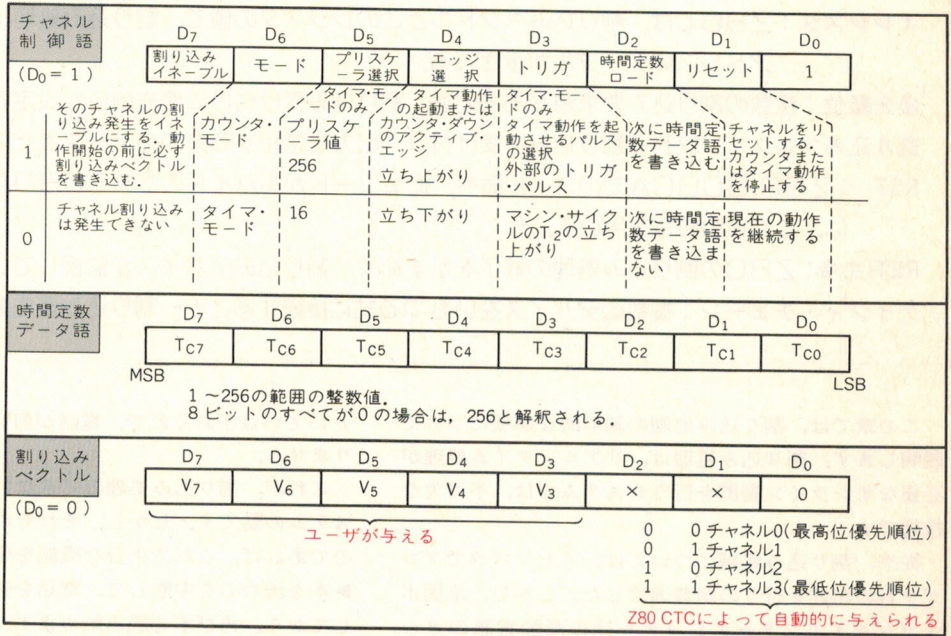 チャネル
制御語
(D0＝1)
D7 D6 D5 D4 D3 D2 D1 D0
割り込み
イネーブル
モード
プリスケ
ーラ選択
エッジ
選択
トリガ
時間定数
ロード
リセット
1
1
そのチャネルの割
り込み発生をイネ
ーブルにする．動
作開始の前に必ず
割り込みベクトル
を書き込む．
カウンタ・
モード
タイマ・モー
ドのみ
プリスケ
ーラ値
256
タイマ動作
の起動または
カウンタ・ダウン
のアクティブ・
エッジ
立ち上がり
タイマ・モード
のみ
タイマ動作を起
動させるパルス
の選択
外部のトリガ
・パルス
次に時間定
数データ語
を書き込む
チャネルをリ
セットする．
カウンタまた
はタイマ動作
を停止する
0
チャネル割り込み
は発生できない
タイマ・
モード
16
立ち下がり
マシン・サイク
ルのT2の立ち
上がり
次に時間定
数データ語
を書き込ま
ない
現在の動作
を継続する
時間定数
データ語
D7 D6 D5 D4 D3 D2 D1 D0
TC7 TC6 TC5 TC4 TC3 TC2 TC1 TC0
MSB LSB
1～256の範囲の整数値．
8ビットのすべてが0の場合は，256と解釈される．
割り込み
ベクトル
(D0＝0)
D7 D6 D5 D4 D3 D2 D1 D0
V7 V6 V5 V4 V3 × × 0
ユーザが与える
0 0 チャネル0(最高位優先順位)
0 1 チャネル1
1 0 チャネル2
1 1 チャネル3(最低位優先順位)
Z80 CTCによって自動的に与えられる